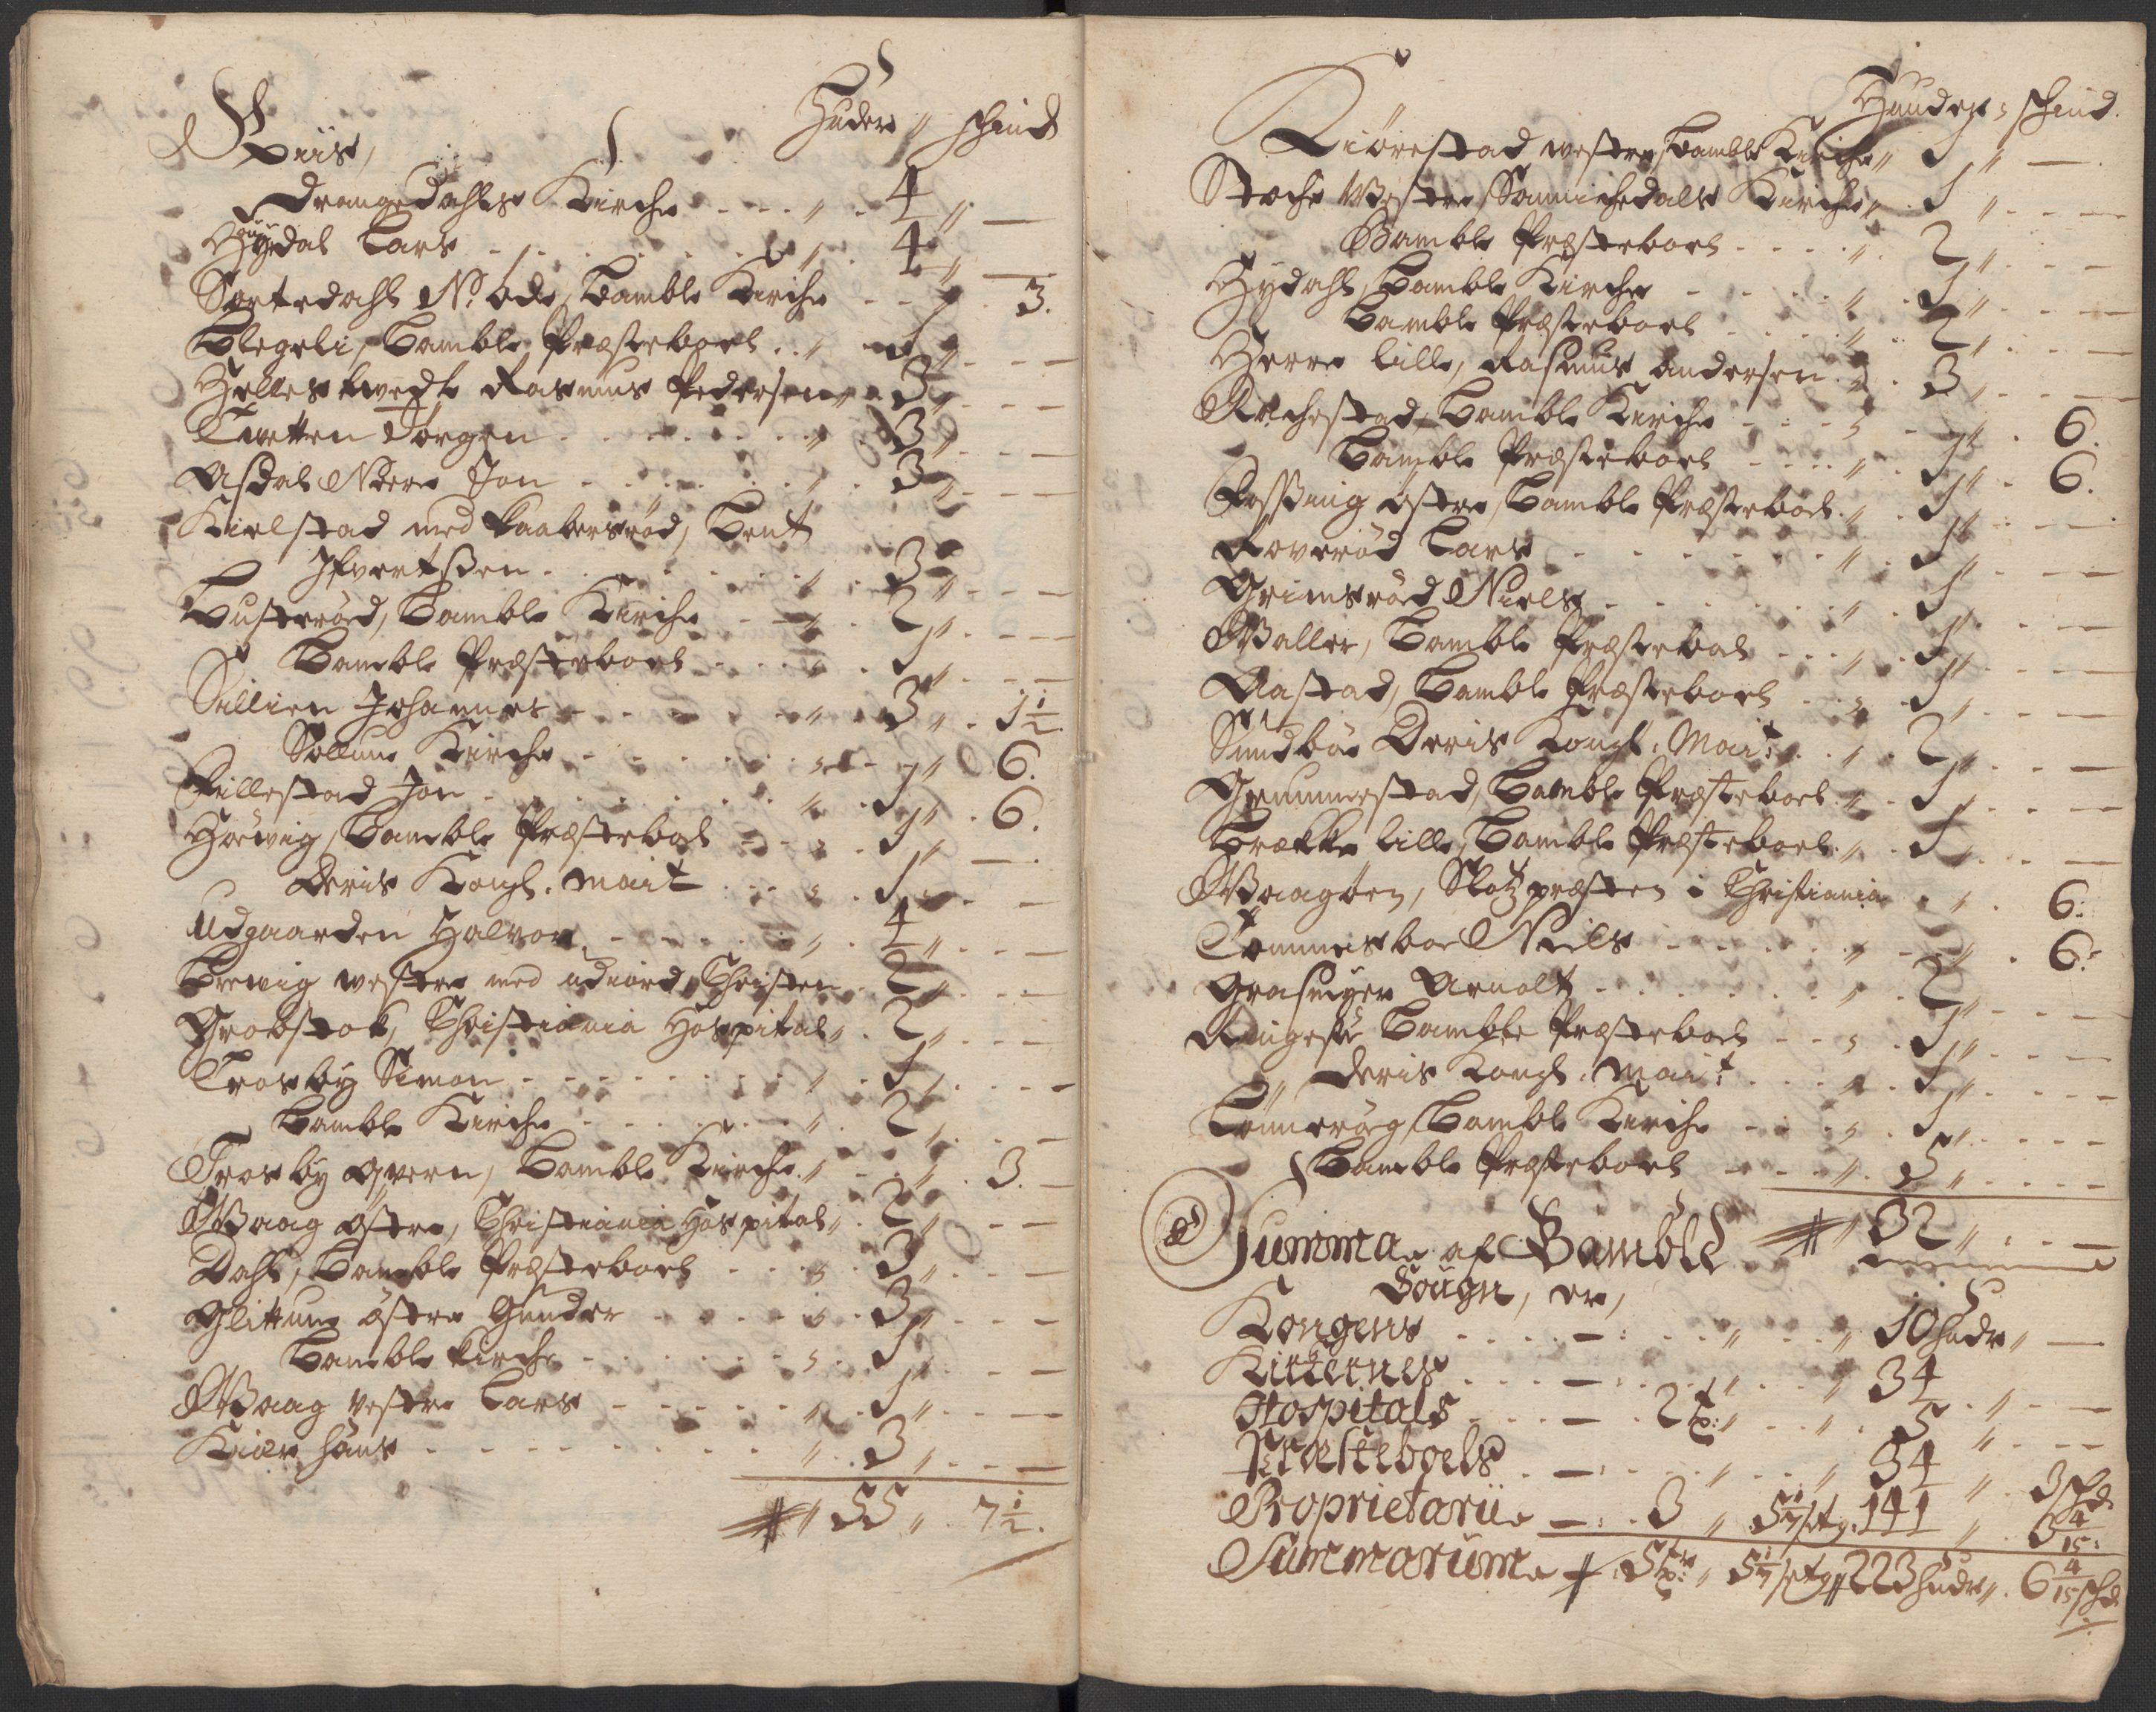 Huder " schind
Eviis,
Drangedahls Kirche - - - " 4 " —
Høydal Lars - - - " 4 " —
Sortedahl N: øde, Bamble Kirche - - " . 3.
Blegeli, Bamble Præsteboel . . " 1 " - - -
Hellestvedt Rasmus Pedersen " 3 " - - -
Tvetten Jørgen - - - " 3 " - - -
Asdal Nere Jon - - - " 3 " - - -
Kielstad med Saabersrød, Bent
Ifvertßen - - - " 3 " - - -
Busterød, Bamble Kirche - - " 2 " - - -
Bamble Præsteboel - - - " 1 " - - -
Sillien Johannes - - - " 3 " . 1½
Sollum Kirche - - - " - " 6.
Fillestad Jon - - - " 1 " . 6.
Hørvig, Bamble Præsteboel - - " 1 " —.
Deris Kongl. Mait - - " 1 " —
Udgaarden Halvor - - - " 4 " - - -
Brevig westre med ødiord, Christen 2 " - - -
Grobstok, Christiania Hospital " 2 " - - -
Trosby Simon - - - " 1 " - - -
Bamble Kirche - - - " 2 " - - -
Trosby Qvern, Bamble Kirche " - " . 3. —
Waag østre, Christiania Hospital " 2 " - - -
Dahl, Bamble Præsteboel - - - " 3 " - - -
Glittum østre Gunder - - - " 3 " - - -
Bamble Kirche - - - " 1 " - - -
Waag vestre Lars - - - " 1 " - - -
Kier Hans - - - " 3 " - - -
" 55 " . 7½.
Huuder " schind.
Kiørestad westre, Bamble Kirche " 1 " —.
Stoche Westre, Sannichedals Kirche " 1 " - - -
Bamble Præsteboel - - - " 2 " - - -
Hydahl, Bamble Kirche - - - " 1 " - - -
Bamble Præsteboel - - - " 2 " - - -
Herre lille, Rasmus Andersen " 3 " - - -
Rochestad, Bamble Kirche - - " - " . 6.
Bamble Præsteboel - - - " 1 " . 6.
Fossing østre, Bamble Præsteboel " 1 " - - -
Roverød Lars - - - " 1 " - - -
Grimsrød Niels - - - " 1 " - - -
Waller, Bamble Præsteboel - - " 1 " - - -
Aastad, Bamble Præsteboel - - " 1 " - - -
Sundbøe Deris Kongl. Mait: - " 2 " - - -
Grummestad, Bamble Præsteboel " 1 " - - -
Brekke lille, Bamble Præsteboel " 1 " - - -
Waagøen, Slotzpræsten i Christiania - " . 6:
Tommesboe Niels - - - " - " . 6:
Grasmyer Arnolt - - - " 2 " - - -
Ringese Bamble Præsteboel - - " 1 " - - -
Deris Kongl. Mait - - " 1 " - - -
Tønnerøg, Bamble Kirche - - " 1 " - - -
Bamble Præsteboel - - - " 5 " - - -
Summa af Bamble " 32 " - - -
Sougn, er,
Kongens - - - " 10 Hudr " —
Kirkernes - - - " 34 " —
Hospitals - - - 2 " - " 5 " - - -
Præsteboels - - - " 34 " 3 schd:
Proprietarii - - - 3 " 5 1/7 setg. 141 " 3 4/15:
Summarum 5 " 5 1/7 setg " 223 Hudr " . 6 4/15 schd.